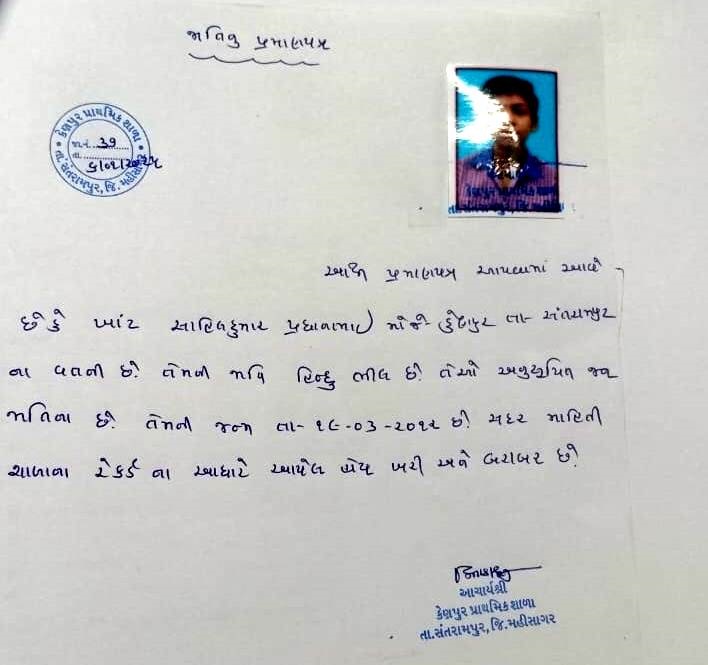 જાતિનું પ્રમાણપત્ર
કેણપુર પ્રાથમિક શાળા
જા.નં. 39
તા.
તા.સંતરામપુર, જિ.મહીસાગર
કેણપુર પ્રાથમિક શાળા
તા.સંતરામપુર, જિ. મહીસાગર
આથી પ્રમાણપત્ર આપવામાં આવે
છે કે ખાંટ સાહિલકુમાર મોજે કેણપુર તા- સંતરામપુર
ના વતની છે. તેમની જાતિ હિન્દુ ભીલ છે. તેઓ અનુસૂચિત જન
જાતિના છે. તેમની જન્મ તા- ૧૯-૦૩-૨૦૧૨ છે. સદર માહિતી
શાળાના રેકર્ડ ના આધારે આપેલ હોય ખરી અને બરાબર છે.
આચાર્યશ્રી
કેણપુર પ્રાથમિક શાળા
તા.સંતરામપુર, જિ.મહીસાગર